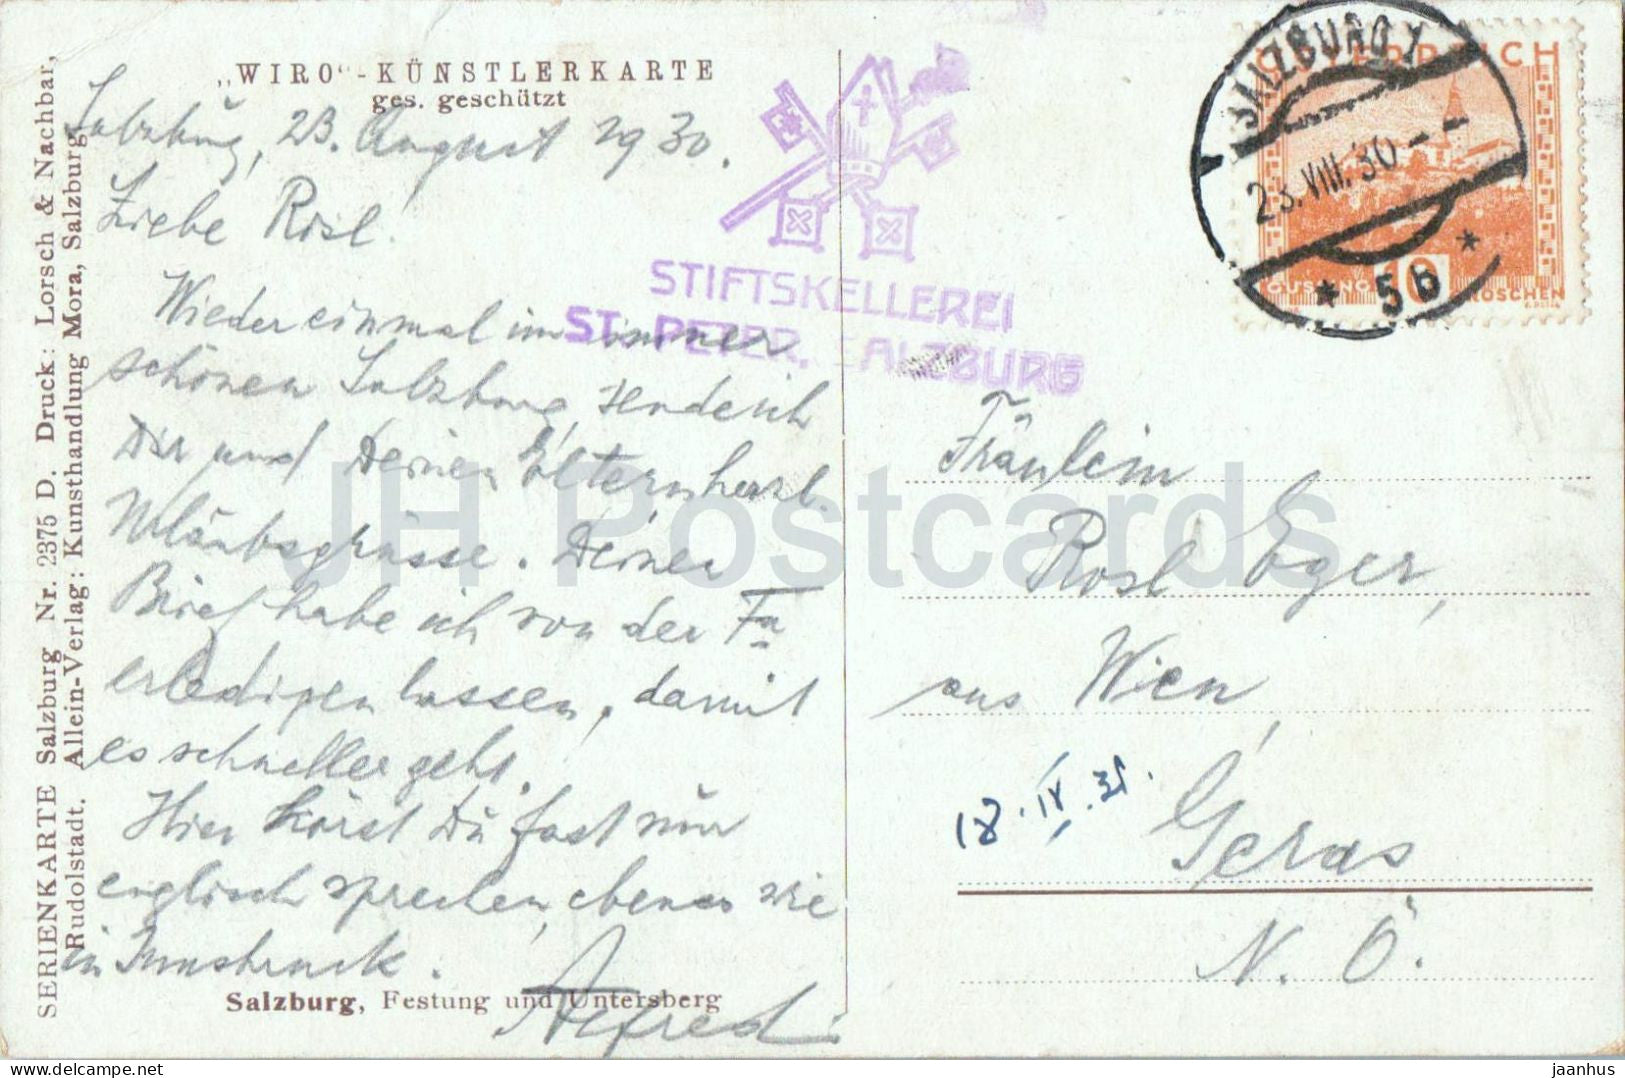 „WIRO“-KÜNSTLERKARTE
ges. geschützt
Salzburg, 23. August 1930.
Liebe Rosl.
Wieder einmal im immer
schönen Salzburg, sende ich
Dir und Deinen Eltern herzl.
Urlaubsgrüsse. Deinen
Brief habe ich von der Fa
erledigen lassen, damit
es schneller geht.
Hier hörst Du fast nur
englisch sprechen, ebenso wie
in Innsbruck.
Alfred
Salzburg, Festung und Untersberg
SERIENKARTE Salzburg Nr. 2375 D. Druck: Lorsch & Nachbar,
Rudolstadt. Allein-Verlag: Kunsthandlung Mora, Salzburg.
STIFTSKELLEREI
ST. PETER, SALZBURG
SALZBURG 1
23.VIII.30
* 5b *
ÖSTERREICH
10
GÜSSING
GROSCHEN
Fräulein
Rosl Eger,
aus Wien,
18.IX.31.
Geras
N.Ö.
JH Postcards
jaanhus